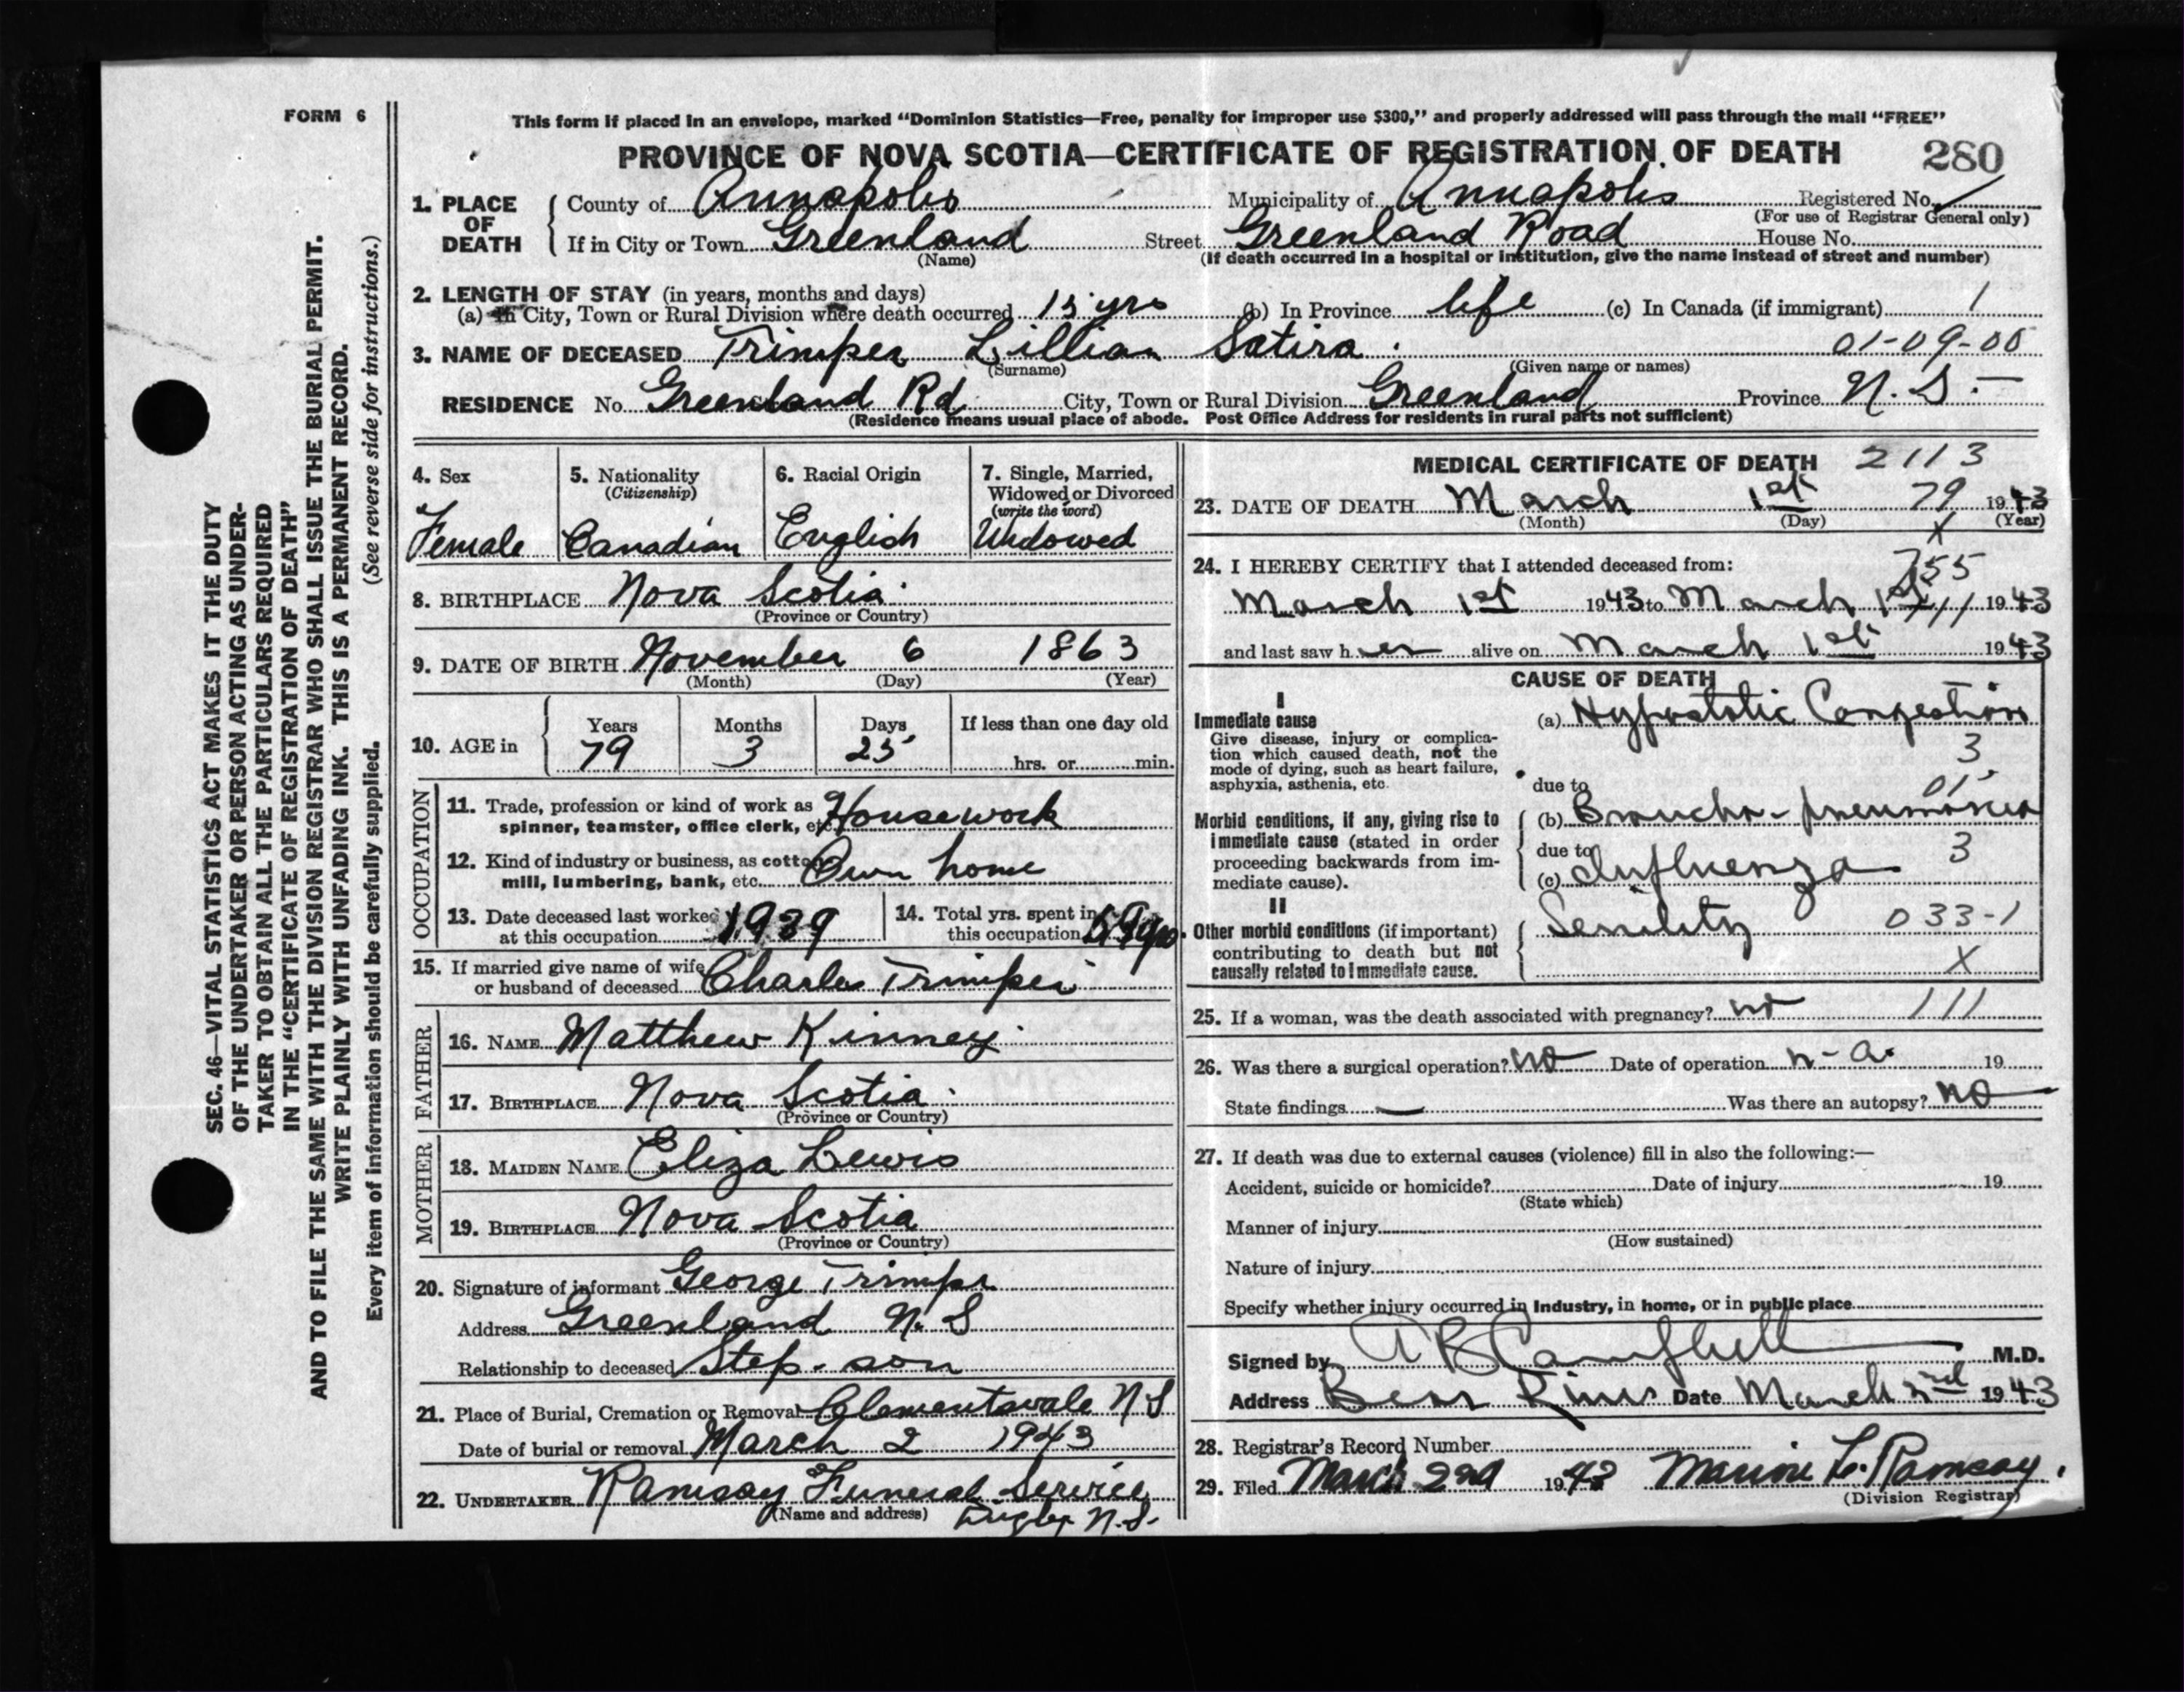 FORM 6
This form if placed in an envelope, marked “Dominion Statistics—Free, penalty for improper use $300,” and properly addressed will pass through the mail “FREE”
PROVINCE OF NOVA SCOTIA—CERTIFICATE OF REGISTRATION OF DEATH 280
1. PLACE OF DEATH { County of Annapolis Municipality of Annapolis Registered No.
(For use of Registrar General only)
If in City or Town Greenland Street Greenland Road House No.
(Name) (If death occurred in a hospital or institution, give the name instead of street and number)
2. LENGTH OF STAY (in years, months and days)
(a) In City, Town or Rural Division where death occurred 15 yrs (b) In Province life (c) In Canada (if immigrant) 1
3. NAME OF DECEASED Trimper Lillian Satira 01-09-00
(Surname) (Given name or names)
RESIDENCE No. Greenland Rd City, Town or Rural Division Greenland Province N. S.
(Residence means usual place of abode. Post Office Address for residents in rural parts not sufficient)
SEC. 46—VITAL STATISTICS ACT MAKES IT THE DUTY
OF THE UNDERTAKER OR PERSON ACTING AS UNDER-
TAKER TO OBTAIN ALL THE PARTICULARS REQUIRED
IN THE “CERTIFICATE OF REGISTRATION OF DEATH”
AND TO FILE THE SAME WITH THE DIVISION REGISTRAR WHO SHALL ISSUE THE BURIAL PERMIT.
WRITE PLAINLY WITH UNFADING INK. THIS IS A PERMANENT RECORD.
Every item of information should be carefully supplied. (See reverse side for instructions.)
4. Sex 5. Nationality 6. Racial Origin 7. Single, Married,
(Citizenship) Widowed or Divorced
(write the word)
Female Canadian English Widowed
8. BIRTHPLACE Nova Scotia
(Province or Country)
9. DATE OF BIRTH November 6 1863
(Month) (Day) (Year)
10. AGE in { Years Months Days If less than one day old
79 3 25 hrs. or min.
OCCUPATION
11. Trade, profession or kind of work as
spinner, teamster, office clerk, etc. Housework
12. Kind of industry or business, as cotton
mill, lumbering, bank, etc. Own home
13. Date deceased last worked
at this occupation 1939
14. Total yrs. spent in
this occupation
15. If married give name of wife
or husband of deceased Charles Trimper
FATHER
16. NAME Matthew Kinney
17. BIRTHPLACE Nova Scotia
(Province or Country)
MOTHER
18. MAIDEN NAME Eliza Lewis
19. BIRTHPLACE Nova Scotia
(Province or Country)
20. Signature of informant George Trimper
Address Greenland N. S
Relationship to deceased Step-son
21. Place of Burial, Cremation or Removal Clementsvale N S
Date of burial or removal March 2 1943
22. UNDERTAKER Ramsay Funeral Service
(Name and address) Digby N.S.
MEDICAL CERTIFICATE OF DEATH 2113
23. DATE OF DEATH March 1st 79 1943
(Month) (Day) (Year)
X
24. I HEREBY CERTIFY that I attended deceased from:
755
March 1st 1943 to March 1st 1943
and last saw her alive on March 1st 1943
CAUSE OF DEATH
I
Immediate cause
Give disease, injury or complica-
tion which caused death, not the
mode of dying, such as heart failure,
asphyxia, asthenia, etc.
(a) Hypostatic Congestion
3
due to 01
Morbid conditions, if any, giving rise to
immediate cause (stated in order
proceeding backwards from im-
mediate cause).
(b) Broncho-pneumonia
due to 3
(c) Influenza
II
Other morbid conditions (if important)
contributing to death but not
causally related to immediate cause.
Senility 033-1
X
25. If a woman, was the death associated with pregnancy? no 111
26. Was there a surgical operation? no Date of operation n-a. 19
State findings — Was there an autopsy? no
27. If death was due to external causes (violence) fill in also the following:—
Accident, suicide or homicide? Date of injury 19
(State which)
Manner of injury
(How sustained)
Nature of injury
Specify whether injury occurred in Industry, in home, or in public place
Signed by Campbell M.D.
Address Bear River Date March 2nd 1943
28. Registrar's Record Number
29. Filed March 2nd 1943 L. Ramsay
(Division Registrar)